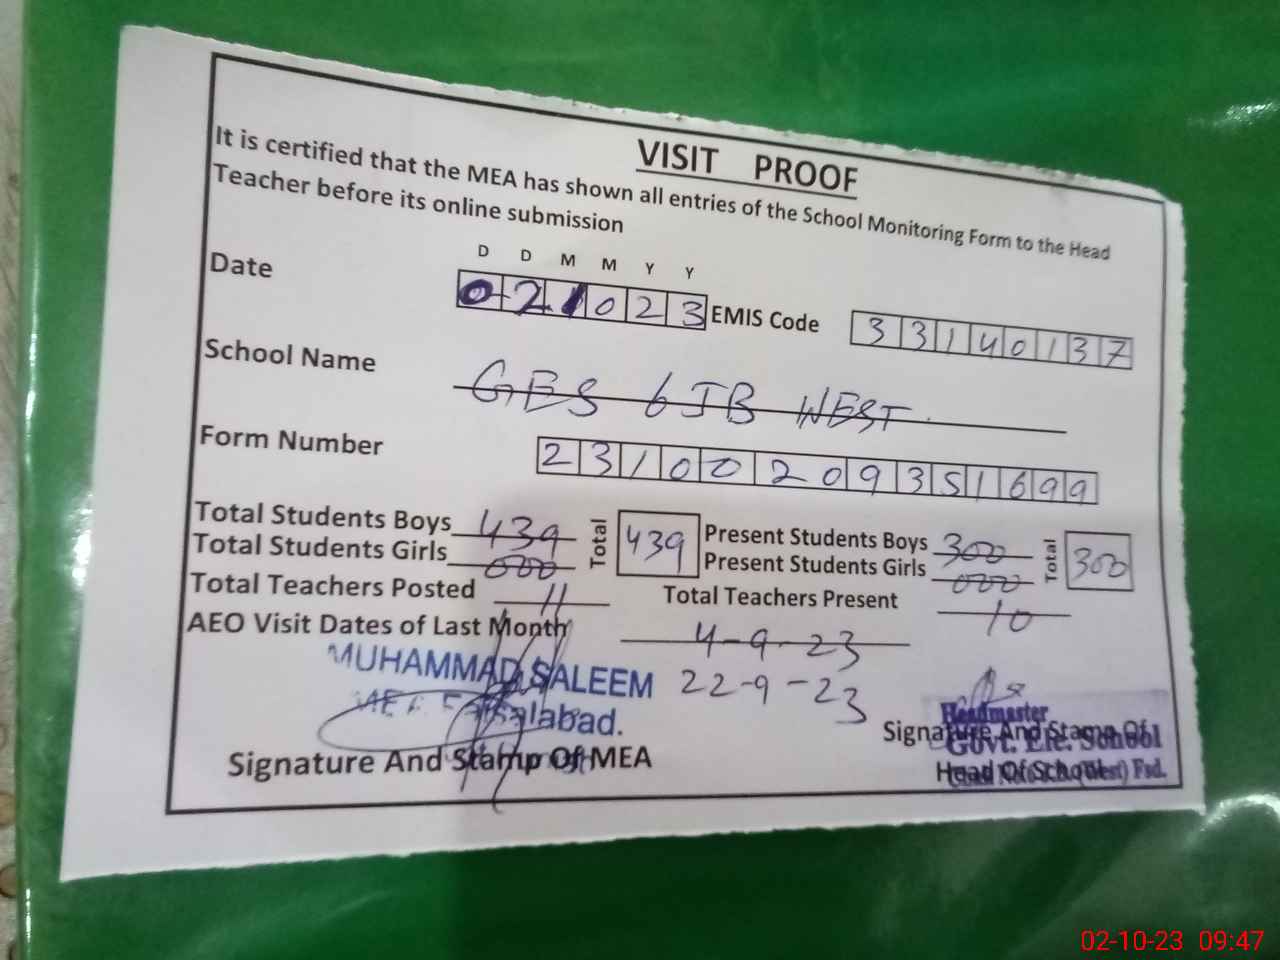 VISIT PROOF
It is certified that the MEA has shown all entries of the School Monitoring Form to the Head
Teacher before its online submission
D D M M Y Y
Date 0 2 1 0 2 3 EMIS Code 3 3 1 4 0 1 3 7
School Name GES 6JB WEST
Form Number 2 3 1 0 0 2 0 9 3 5 1 6 9 9
Total Students Boys 439 Total 439 Present Students Boys 300 Total 300
Total Students Girls 000 Present Students Girls 000
Total Teachers Posted 11 Total Teachers Present 10
AEO Visit Dates of Last Month 4-9-23
22-9-23
MUHAMMAD SALEEM
MEA Faisalabad.
Signature And Stamp Of MEA
Headmaster
Signature And Stamp Of
Govt. Ele. School
Head Of School
(West) Fsd.
02-10-23 09:47